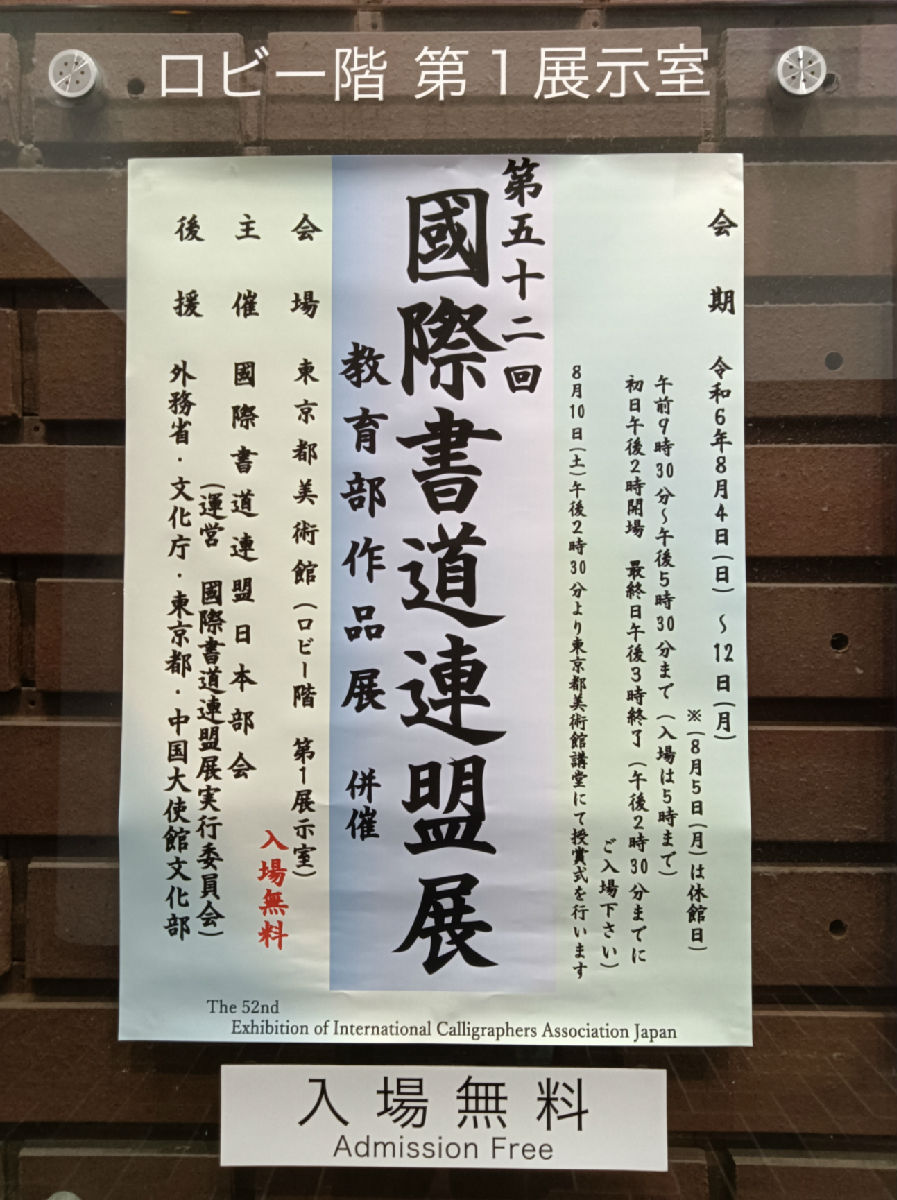 ロビー階 第1展示室
会期 令和6年8月4日(日)~12日(月)
※(8月5日(月)は休館日)
午前9時30分~午後5時30分まで(入場は5時まで)
初日午後2時開場 最終日午後3時終了(午後2時30分までに
ご入場下さい)
8月10日(土)午後2時30分より東京都美術館講堂にて授賞式を行います
第五十二回
國際書道連盟展
教育部作品展 併催
会場 東京都美術館(ロビー階 第1展示室)
入場無料
主催 國際書道連盟日本部会
(運営 國際書道連盟展実行委員会)
後援 外務省・文化庁・東京都・中国大使館文化部
The 52nd
Exhibition of International Calligraphers Association Japan
入場無料
Admission Free